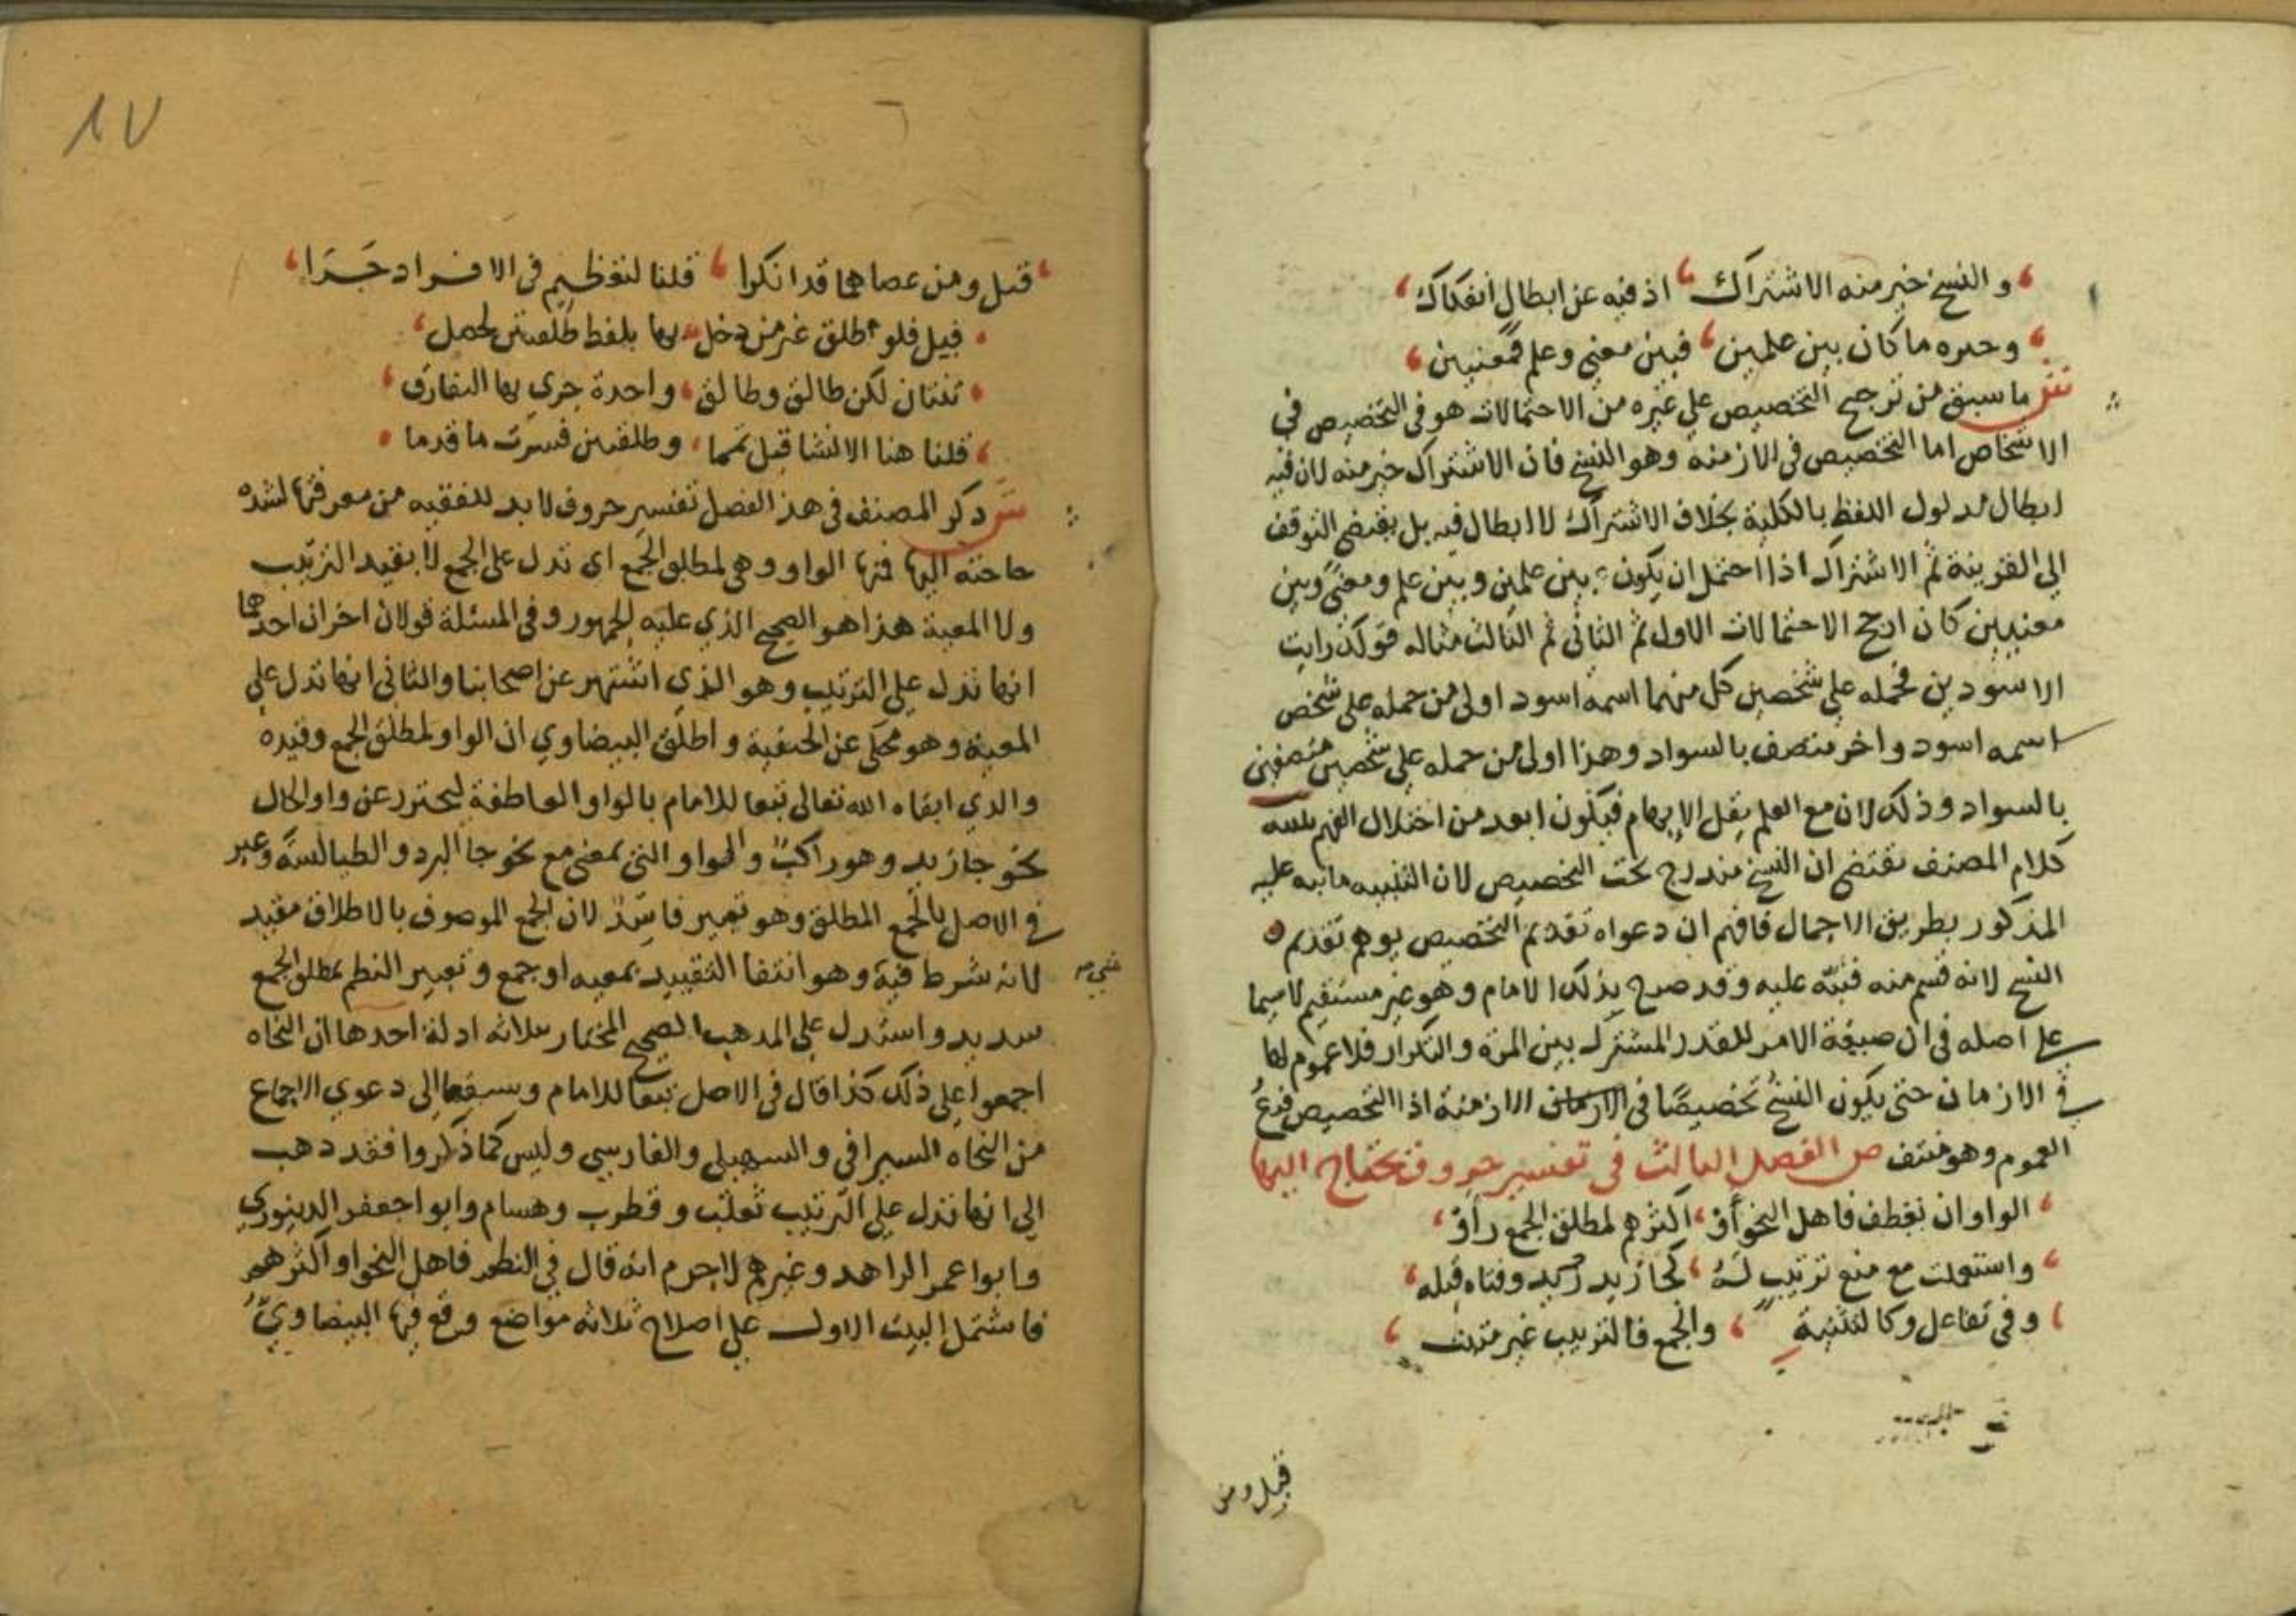 والنسخ خير منه الاشتراك اذ فيه عن ابطال انفكاك
ما كان بين علمين فبين معنى وعلم فمعنيين
ما سبق من ترجيح التخصيص على غيره من الاحتمالات هو في التخصيص في
الاشخاص اما التخصيص في الازمنة وهو النسخ فان الاشتراك خير منه لان فيه
ابطال مدلول اللفظ بالكلية بخلاف الاشتراك لا ابطال فيه بل يقتضي التوقف
الى القرينة ثم الاشتراك اذا احتمل ان يكون بين علمين وبين علم ومعنى وبين
معنيين كان ارجح الاحتمالات الاول ثم الثاني ثم الثالث مثاله قولك رايت
الاسودين فحمله على شخصين كل منهما اسمه اسود اولى من حمله على شخص
اسمه اسود واخر متصف بالسواد وهذا اولى من حمله على شخصين متصفين
بالسواد وذلك لان مع العلم يقل الابهام فيكون ابعد من اختلال الفهم تنبيه
كلام المصنف يقتضي ان النسخ مندرج تحت التخصيص لان التنبيه ما نبه عليه
المذكور بطريق الاجمال فافهم ان دعواه تقديم التخصيص يوهم تقديم
النسخ لانه قسم منه فنبه عليه وقد صرح بذلك الامام وهو غير مستقيم لاسيما
على اصله في ان صيغة الامر للقدر المشترك بين المرة والتكرار فلا عموم لها
في الازمان حتى يكون النسخ تخصيصا في الازمان الازمنة اذ التخصيص فرع
العموم وهو منتف ص الفصل الثالث في تفسير حروف تحتاج اليها
الواو ان تعطف فاهل النحو أو اكثرهم لمطلق الجمع رأو
واستعملت مع منع ترتيب له كجا زيد وفتاه قبله
وفي تفاعل وكالتثنية والجمع فالترتيب غير مثبت
قيل ومن
١٧
قيل ومن عصاهما قد انكرا قلنا لتعظيم في الافراد جرا
قيل فلو طلق غير من دخل بها بلفظ طلقتين لحصل
ثنتان لكن طالق وطالق واحدة جرى بها التفارق
قلنا هنا الانشا قبل تمما وطلقتين فسرت ما قدما
ش ذكر المصنف في هذا الفصل تفسير حروف لا بد للفقيه من معرفتها لشدة
حاجته اليها فمنها الواو وهي لمطلق الجمع اي تدل على الجمع لا بقيد الترتيب
ولا المعية هذا هو الصحيح الذي عليه الجمهور وفي المسئلة قولان اخران احدهما
انها تدل على الترتيب وهو الذي اشتهر عن اصحابنا والثاني انها تدل على
المعية وهو محكى عن الحنفية واطلق البيضاوي ان الواو لمطلق الجمع وقيده
والدي ابقاه الله تعالى تبعا للامام بالواو العاطفة ليحترز عن واو الحال
نحو جا زيد وهو راكب والواو التي بمعنى مع نحو جا البرد والطيالسة وعبر
في الاصل بالجمع المطلق وهو تعبير فاسد لان الجمع الموصوف بالاطلاق مقيد
لانه شرط فيه وهو انتفا التقييد بمعيه او جمع وتعبير النظم بمطلق الجمع
سديد واستدل على المذهب الصحيح المختار بثلاثه ادلة احدها ان النحاه
اجمعوا على ذلك كذا قال في الاصل تبعا للامام وسبقها الى دعوي الاجماع
من النحاه السيرافي والسهيلي والفارسي وليس كما ذكروا فقد ذهب
الى انها تدل على الترتيب ثعلب وقطرب وهشام وابو اجعفر الدينوري
وابوا عمر الزاهد وغيرهم لا جرم انه قال في النظم فاهل النحو او اكثرهم
فاشتمل البيت الاول على اصلاح ثلاثه مواضع وقع فيها البيضاوي